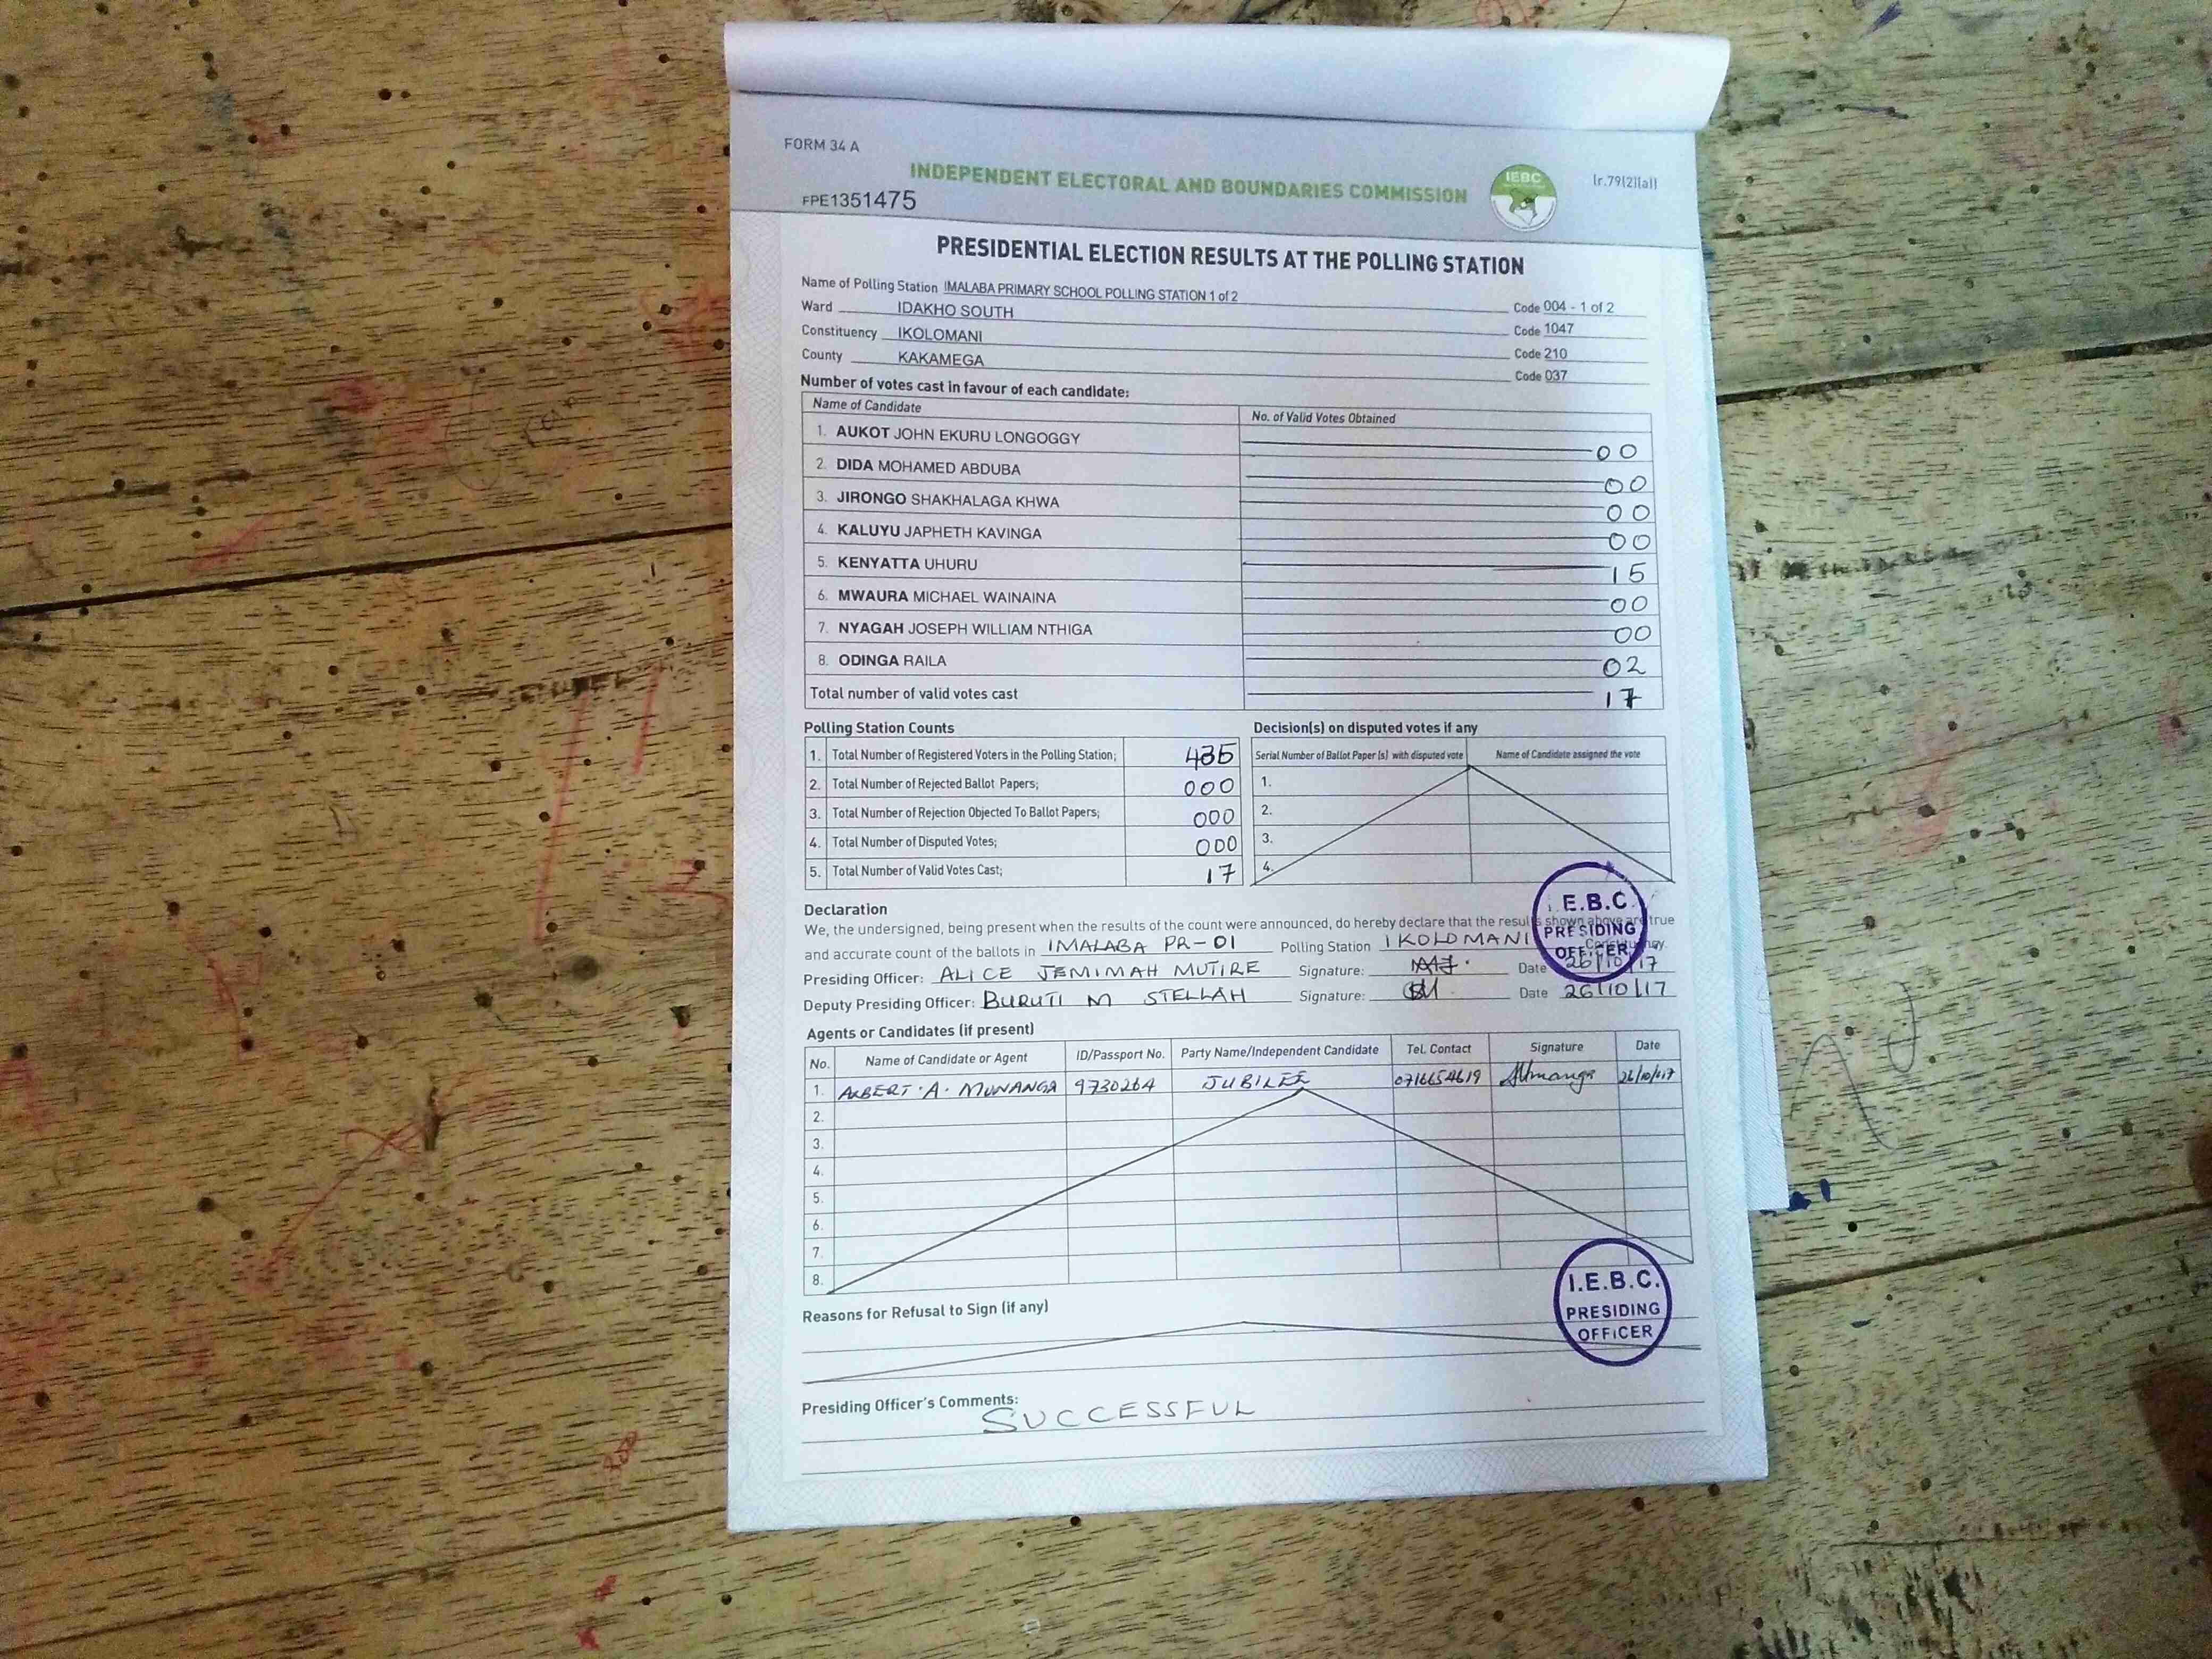 FORM 34 A
INDEPENDENT ELECTORAL AND BOUNDARIES COMMISSION
IEBC
(r.79(2)(a))
FPE1351475
PRESIDENTIAL ELECTION RESULTS AT THE POLLING STATION
Name of Polling Station IMALABA PRIMARY SCHOOL POLLING STATION 1 of 2 Code 004 - 1 of 2
Ward IDAKHO SOUTH Code 1047
Constituency IKOLOMANI Code 210
County KAKAMEGA Code 037
Number of votes cast in favour of each candidate:
Name of Candidate No. of Valid Votes Obtained
1. AUKOT JOHN EKURU LONGOGGY 00
2. DIDA MOHAMED ABDUBA 00
3. JIRONGO SHAKHALAGA KHWA 00
4. KALUYU JAPHETH KAVINGA 00
5. KENYATTA UHURU 15
6. MWAURA MICHAEL WAINAINA 00
7. NYAGAH JOSEPH WILLIAM NTHIGA 00
8. ODINGA RAILA 02
Total number of valid votes cast 17
Polling Station Counts Decision(s) on disputed votes if any
1. Total Number of Registered Voters in the Polling Station;
Serial Number of Ballot Paper (s) with disputed vote Name of Candidate assigned the vote
2. Total Number of Rejected Ballot Papers; 000 1.
3. Total Number of Rejection Objected To Ballot Papers; 000 2.
4. Total Number of Disputed Votes; 000 3.
5. Total Number of Valid Votes Cast; 17 4.
I.E.B.C. PRESIDING OFFICER
Declaration
We, the undersigned, being present when the results of the count were announced, do hereby declare that the results shown above are true
and accurate count of the ballots in IMALABA PR-01 Polling Station IKOLOMANI Constituency.
Presiding Officer: ALICE JEMIMAH MUTIRE Signature: Date 26/10/17
Deputy Presiding Officer: BURUTI M STELLAH Signature: Date 26/10/17
Agents or Candidates (if present)
No. Name of Candidate or Agent ID/Passport No. Party Name/Independent Candidate Tel. Contact Signature Date
1. ALBERT A. MUNANGA 9730264 JUBILEE 0716654619 26/10/017
2.
3.
4.
5.
6.
7.
8.
Reasons for Refusal to Sign (if any)
I.E.B.C.
PRESIDING
OFFICER
Presiding Officer's Comments:
SUCCESSFUL